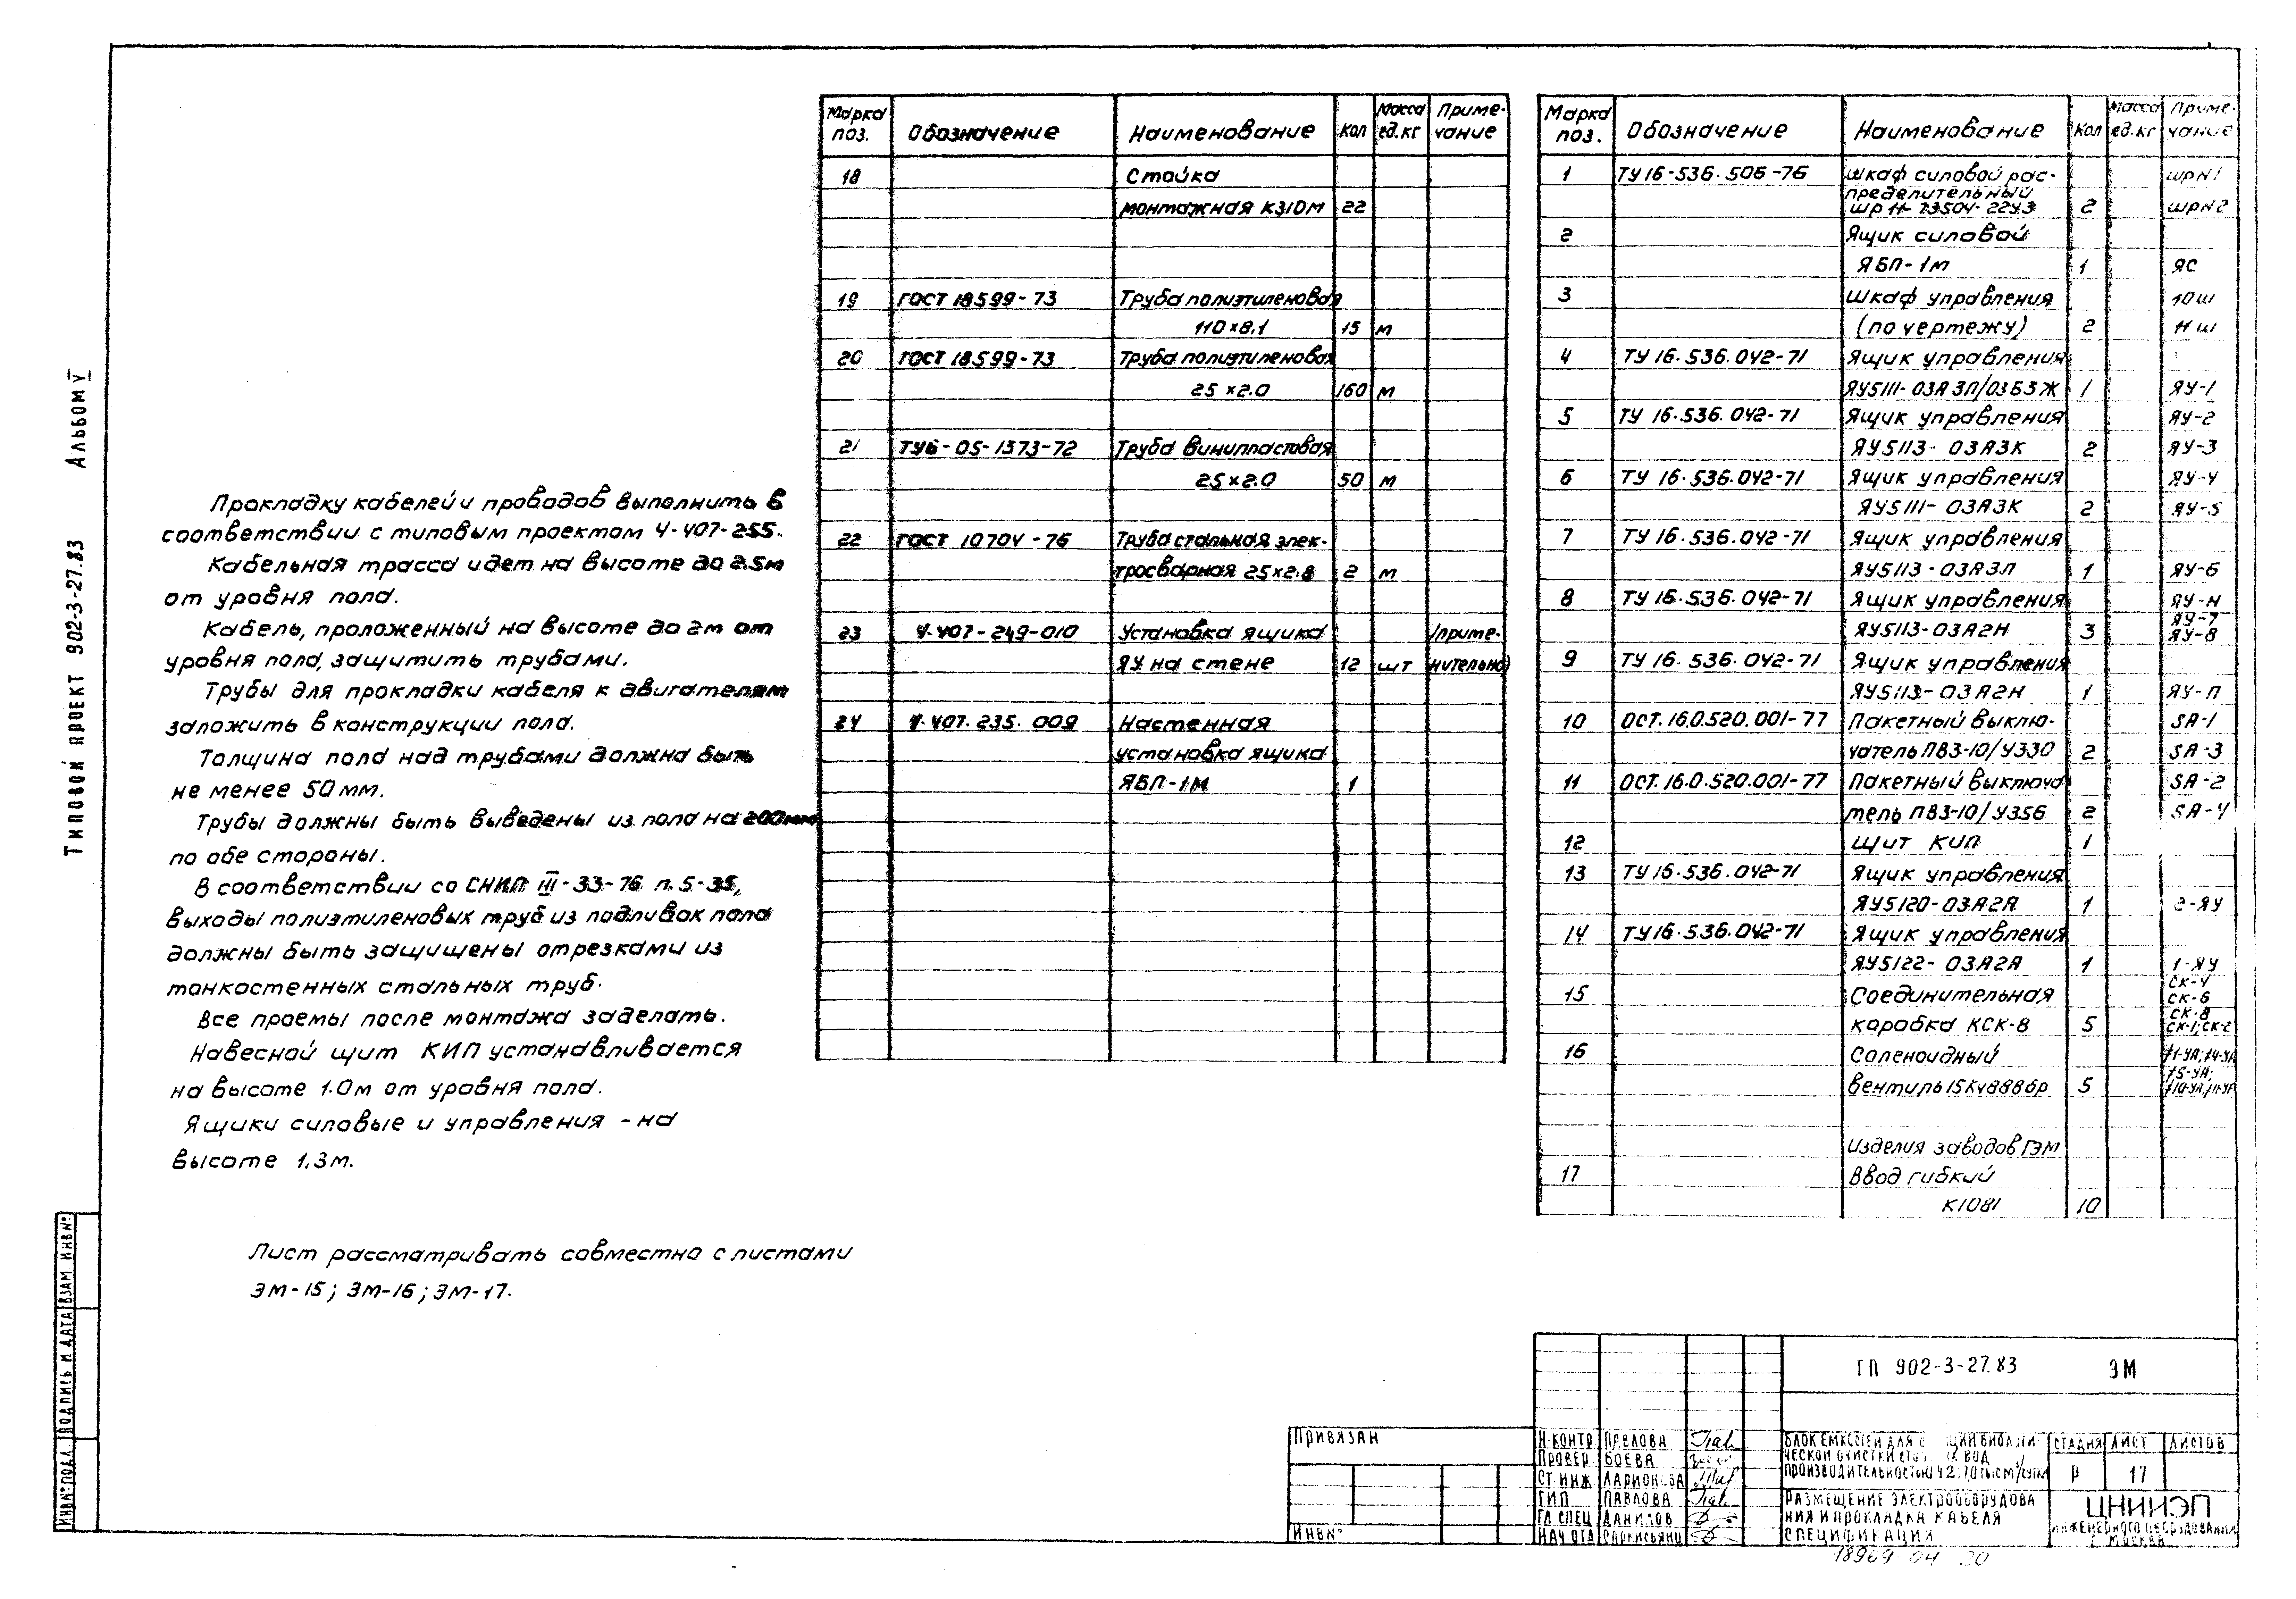 Типовой проект 902-3-27.83 Альбом V
Прокладку кабелей и проводов выполнить в
соответствии с типовым проектом 4-407-255.
Кабельная трасса идет на высоте до 2.5м
от уровня пола.
Кабель, проложенный на высоте до 2м от
уровня пола, защитить трубами.
Трубы для прокладки кабеля к двигателям
заложить в конструкции пола.
Толщина пола над трубами должна быть
не менее 50мм.
Трубы должны быть выведены из пола на 200мм
по обе стороны.
В соответствии со СНиП III-33-76 п. 5-35,
выходы полиэтиленовых труб из подливок пола
должны быть защищены отрезками из
тонкостенных стальных труб.
Все проемы после монтажа заделать.
Навесной щит КИП устанавливается
на высоте 1.0м от уровня пола.
Ящики силовые и управления - на
высоте 1.3м.
Лист рассматривать совместно с листами
ЭМ-15; ЭМ-16; ЭМ-17.
Марка поз. Обозначение Наименование Кол Масса ед.кг Примечание
18 Стойка
монтажная К310М 22
19 ГОСТ 18599-73 Труба полиэтиленовая
110×8,1 15 м
20 ГОСТ 18599-73 Труба полиэтиленовая
25×2.0 160 м
21 ТУ6-05-1573-72 Труба винипластовая
25×2.0 50 м
22 ГОСТ 10704-76 Труба стальная элек-
тросварная 25×2.8 2 м
23 4.407-249-010 Установка ящика /приме-
ЯУ на стене 12 шт нительно)
24 4.407.235.009 Настенная
установка ящика
ЯБП-1М 1
Марка поз. Обозначение Наименование Кол Масса ед.кг Приме-чание
1 ТУ16-536.506-76 Шкаф силовой рас- ШРН1
пределительный
ШР11-73504-22У3 2 ШРН2
2 Ящик силовой
ЯБП-1м 1 ЯС
3 Шкаф управления 10Ш
(по чертежу) 2 11Ш
4 ТУ16.536.042-71 Ящик управления
ЯУ5111-03А3Л/03Б3Ж 1 ЯУ-1
5 ТУ 16.536.042-71 Ящик управления ЯУ-2
ЯУ5113-03А3К 2 ЯУ-3
6 ТУ 16.536.042-71 Ящик управления ЯУ-4
ЯУ5111-03А3К 2 ЯУ-5
7 ТУ 16.536.042-71 Ящик управления
ЯУ5113-03А3Л 1 ЯУ-6
8 ТУ 16.536.042-71 Ящик управления ЯУ-Н
ЯУ-7
ЯУ5113-03А2Н 3 ЯУ-8
9 ТУ 16.536.042-71 Ящик управления
ЯУ5113-03А2Н 1 ЯУ-П
10 ОСТ.16.0.520.001-77 Пакетный выклю- SA-1
чатель ПВ3-10/У330 2 SA-3
11 ОСТ.16.0.520.001-77 Пакетный выключа SA-2
тель ПВ3-10/У356 2 SA-4
12 Щит КИП 1
13 ТУ16.536.042-71 Ящик управления
ЯУ5120-03А2А 1 2-ЯУ
14 ТУ16.536.042-71 Ящик управления
ЯУ5122-03А2А 1 1-ЯУ
СК-4
15 Соединительная СК-6
СК-8
коробка КСК-8 5 СК-1;СК-2
16 Соленоидный
вентиль 15кч888бр 5
Изделия заводов ГЭМ
17 Ввод гибкий
К1081 10
ТП 902-3-27.83 ЭМ
Привязан
Инв№
Н.контр Павлова
Провер Боева
Ст.инж Ларионова
ГИП Павлова
Гл спец Данилов
Нач отд Саркисьянц
Блок емкостей для
ческой очистки вод
производительностью
Стадия Лист Листов
Р 17
Размещение электрооборудова
ния и прокладка кабеля
Спецификация
ЦНИИЭП
инженерного оборудования
г. Москва
18969-04 20
Инв.№подл. Подпись и дата Взам. инв№